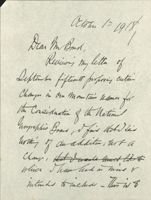 October 1st 1918
Dear Mr Bond,
Reviewing my letter of
September fifteenth proposing certain
changes in our Mountain names for
the Consideration of the National
Geographic Board, I find that I have
nothing of an addition, not a
change,
which I have had in mind &
intended to include. This is to